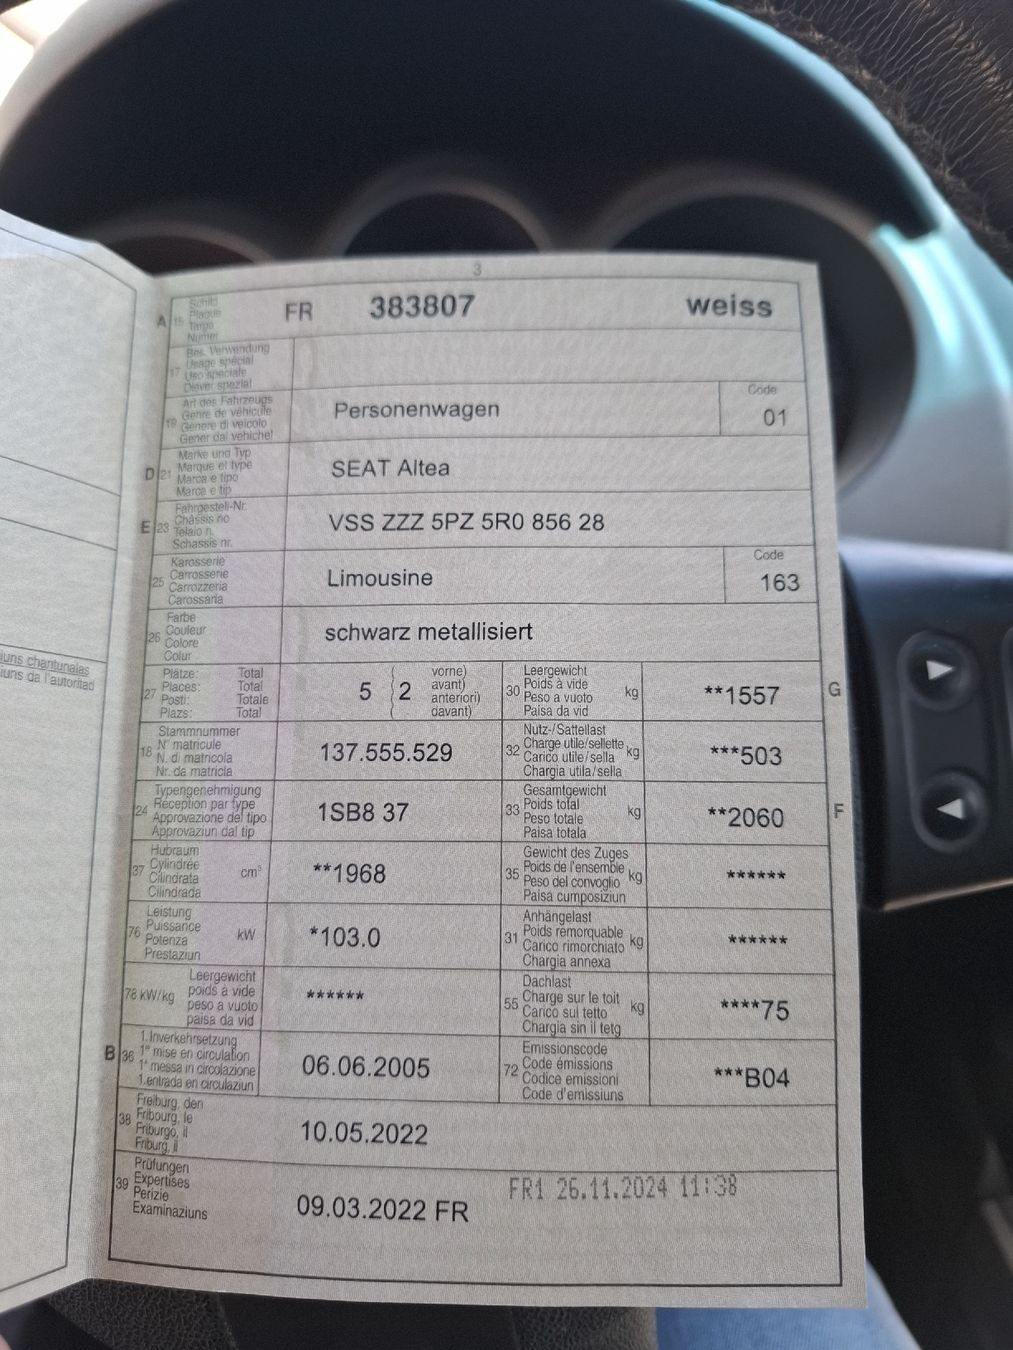 3
A 15 Schild
Plaque
Targa
Numer
FR 383807 weiss
17 Bes. Verwendung
Usage spécial
Uso speciale
Diever spezial
19 Art des Fahrzeugs
Genre de véhicule
Genere di veicolo
Gener dal vehichel
Personenwagen
Code
01
D 21 Marke und Typ
Marque et type
Marca e tipo
Marca e tip
SEAT Altea
E 23 Fahrgestell-Nr.
Châssis no
Telaio n.
Schassis nr.
VSS ZZZ 5PZ 5R0 856 28
25 Karosserie
Carrosserie
Carrozzeria
Carossaria
Limousine
Code
163
26 Farbe
Couleur
Colore
Colur
schwarz metallisiert
27 Plätze: Total
Places: Total
Posti: Totale
Plazs: Total
5 ( 2 vorne)
avant)
anteriori)
davant)
30 Leergewicht
Poids à vide
Peso a vuoto
Paisa da vid
kg
**1557
G
18 Stammnummer
N° matricule
N. di matricola
Nr. da matricla
137.555.529
32 Nutz-/Sattellast
Charge utile/sellette
Carico utile/sella
Chargia utila/sella
kg
***503
24 Typengenehmigung
Réception par type
Approvazione del tipo
Approvaziun dal tip
1SB8 37
33 Gesamtgewicht
Poids total
Peso totale
Paisa totala
kg
**2060
F
37 Hubraum
Cylindrée
Cilindrata
Cilindrada
cm³
**1968
35 Gewicht des Zuges
Poids de l'ensemble
Peso del convoglio
Paisa cumposiziun
kg
******
76 Leistung
Puissance
Potenza
Prestaziun
kW
*103.0
31 Anhängelast
Poids remorquable
Carico rimorchiato
Chargia annexa
kg
******
78 kW/kg Leergewicht
poids à vide
peso a vuoto
paisa da vid
******
55 Dachlast
Charge sur le toit
Carico sul tetto
Chargia sin il tetg
kg
****75
B 36 1.Inverkehrsetzung
1re mise en circulation
1a messa in circolazione
1.entrada en circulaziun
06.06.2005
72 Emissionscode
Code émissions
Codice emissioni
Code d'emissiuns
***B04
38 Freiburg, den
Fribourg, le
Friburgo, il
Friburg, il
10.05.2022
39 Prüfungen
Expertises
Perizie
Examinaziuns
09.03.2022 FR
FR1 26.11.2024 11:38
iuns chantunalas
iuns da l'autoritad